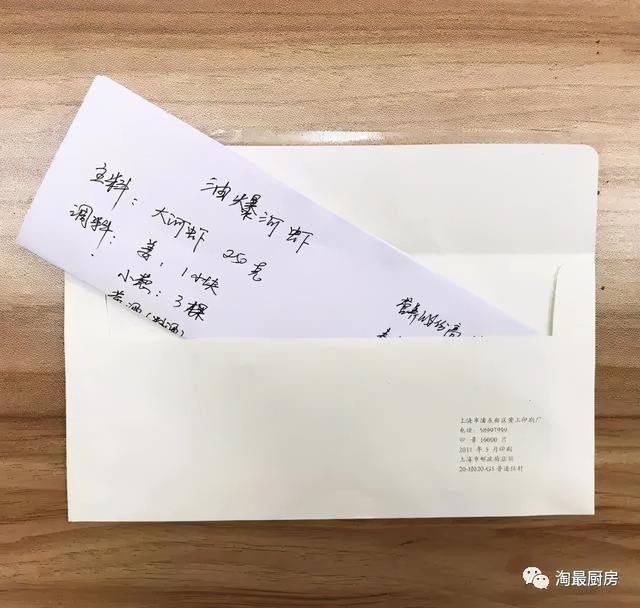 油爆河虾
主料：大河虾 250克
调料：姜，1小块
小葱：3棵
黄酒（料酒）
上海市浦东新区黄工印刷厂
电话：58997999
印 量 10000 只
2011 年 5 月印刷
上海市邮政局监制
淘最厨房